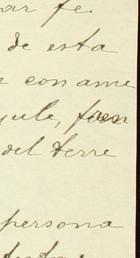 ar fe.
de esta
con ame
ule,
del terre
persona